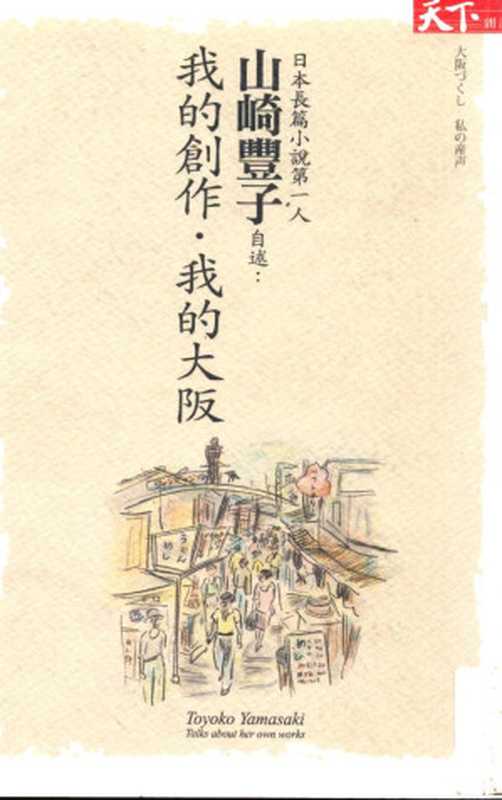 天下
大阪づくし 私の産声
日本長篇小說第一人
山崎豐子自述：
我的創作・我的大阪
うどん
めし
Toyoko Yamasaki
Talks about her own works